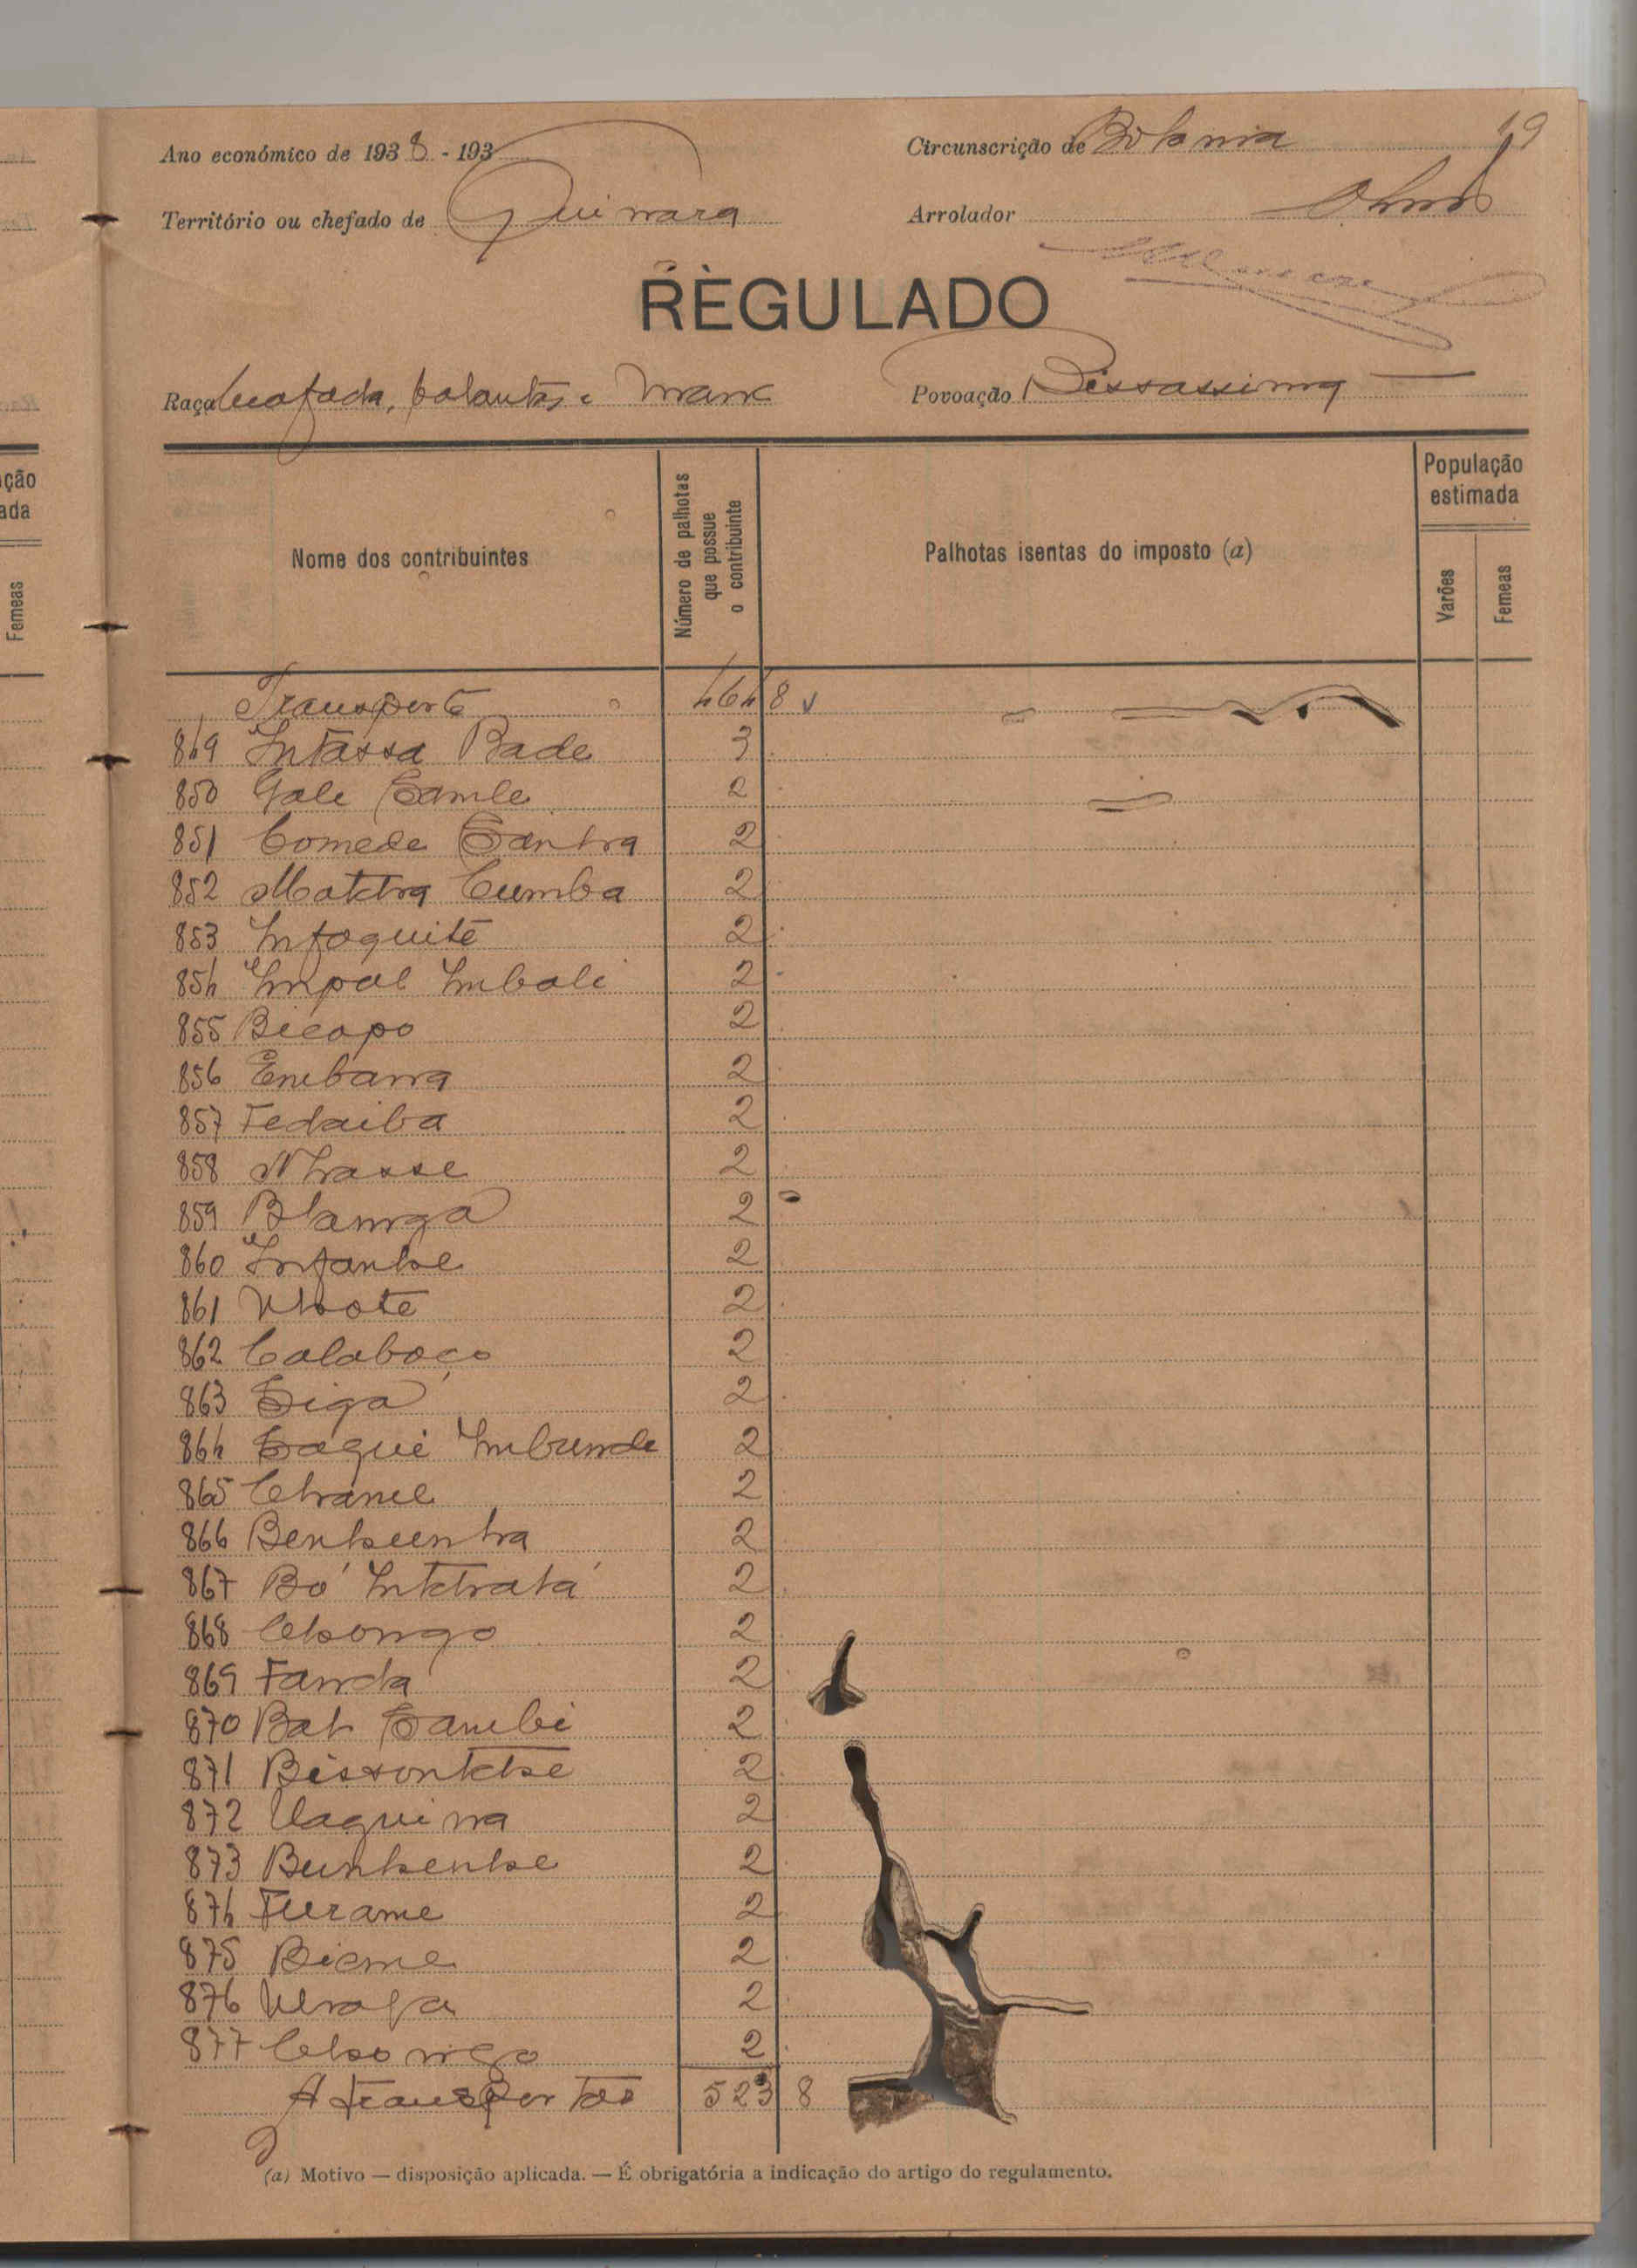 19
Ano económico de 1938 - 193
Circunscrição de Bolama
Território ou chefado de Quinara
Arrolador
REGULADO
Raça Beafada, balantas e
Povoação Bissassima
ção
ada
Femeas
Nome dos contribuintes
Número de palhotas que possue o contribuinte
Palhotas isentas do imposto (a)
População estimada
Varões
Femeas
Transporte 464 8
849 Intassa Bade 3
850 Gale Camle 2
851 Comede Santra 2
852 Maktra Cumba 2
853 Infoquitê 2
854 Impal Imbali 2
855 Bicapo 2
856 Embanna 2
857 Fedaiba 2
858 Nhasse 2
859 Blanga 2
860 Infantse 2
861 2
862 Calaboço 2
863 Siga 2
864 Saqui Imbunde 2
865 2
866 Bentsuntra 2
867 Bó Inktratá 2
868 2
869 Fanda 2
870 Bat Sambi 2
871 Bissonktse 2
872 Uaquina 2
873 Buntsentse 2
874 Furame 2
875 Bieme 2
876 2
877 2
A transportar 523 8
(a) Motivo — disposição aplicada. — É obrigatória a indicação do artigo do regulamento.